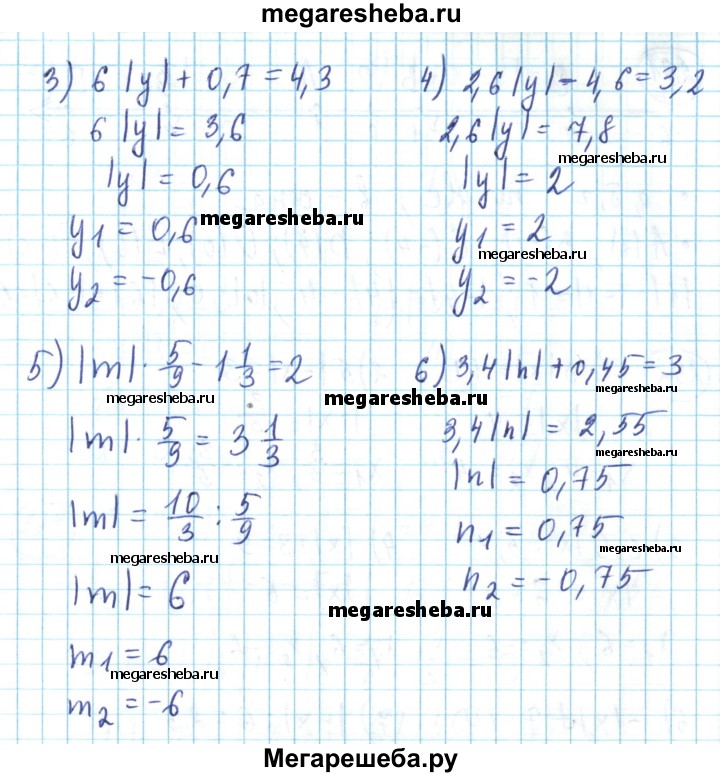 megaresheba.ru
3) 6|y| + 0,7 = 4,3
6|y| = 3,6
|y| = 0,6
y1 = 0,6
megaresheba.ru
y2 = -0,6
4) 2,6|y| - 4,6 = 3,2
2,6|y| = 7,8
megaresheba.ru
|y| = 2
y1 = 2
megaresheba.ru
y2 = -2
5) |m| · 5/9 - 1 1/3 = 2
megaresheba.ru
|m| · 5/9 = 3 1/3
|m| = 10/3 : 5/9
megaresheba.ru
|m| = 6
m1 = 6
megaresheba.ru
m2 = -6
6) 3,4|n| + 0,45 = 3
megaresheba.ru
megaresheba.ru
3,4|n| = 2,55
megaresheba.ru
|n| = 0,75
n1 = 0,75
megaresheba.ru
n2 = -0,75
megaresheba.ru
Мегарешеба.ру